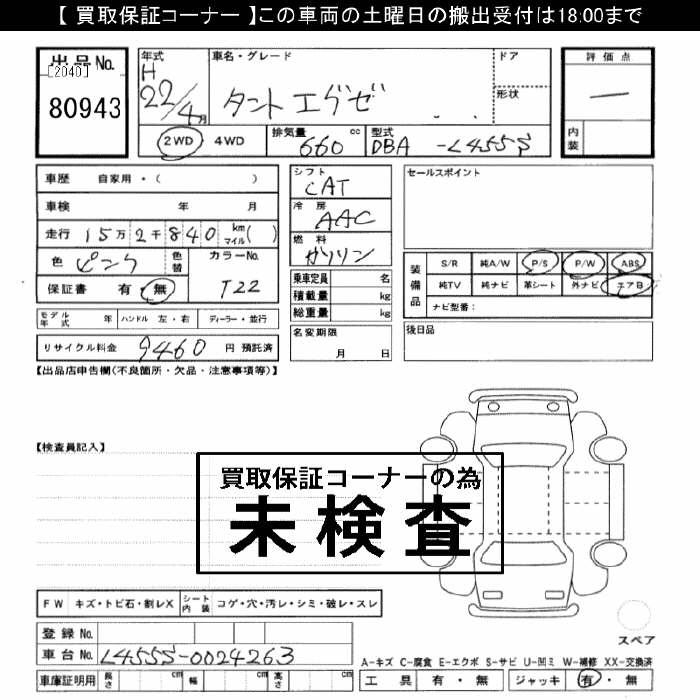 【 買取保証コーナー 】この車両の土曜日の搬出受付は18:00まで
出品No.
[2040]
80943
年式
H
22/4月
車名・グレード
タント エグゼ
ドア
形状
評価点
一
内装
2WD 4WD
排気量 660 cc
型式 DBA -L455S
車歴 自家用・( )
車検 年 月
走行 15万2千840 km マイル( )
色 ピンク 色替
カラーNo. T22
保証書 有・無
モデル年式 年 ハンドル 左・右 ディーラー・並行
リサイクル料金 9460 円 預託済
シフト CAT
冷房 AAC
燃料 ガソリン
乗車定員 名
積載量 kg
総重量 kg
名変期限
月 日
セールスポイント
装備品
S/R 純A/W P/S P/W ABS
純TV 純ナビ 革シート 外ナビ エアB
ナビ型番:
後日品
【出品店申告欄(不良箇所・欠品・注意事項等)】
【検査員記入】
買取保証コーナーの為
未検査
FW キズ・トビ石・割レX シート内装 コゲ・穴・汚レ・シミ・破レ・スレ
登録No.
車台No. L455S-0024263
車庫証明用 長さ cm 幅 cm 高さ cm
スペア
A-キズ C-腐食 E-エクボ S-サビ U-凹ミ W-補修 XX-交換済
工具 有・無 ジャッキ 有・無